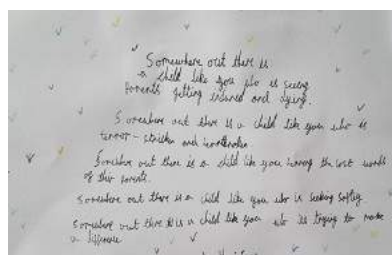 Somewhere out there is
a child like you who is seeing
Parents getting injured and dying.
Somewhere out there is a child like you who is
terror-stricken and heartbroken
Somewhere out there is a child like you hearing the last words
of their parents.
Somewhere out there is a child like you who is seeking safety
Somewhere out there is a child like you who is trying to make
a difference